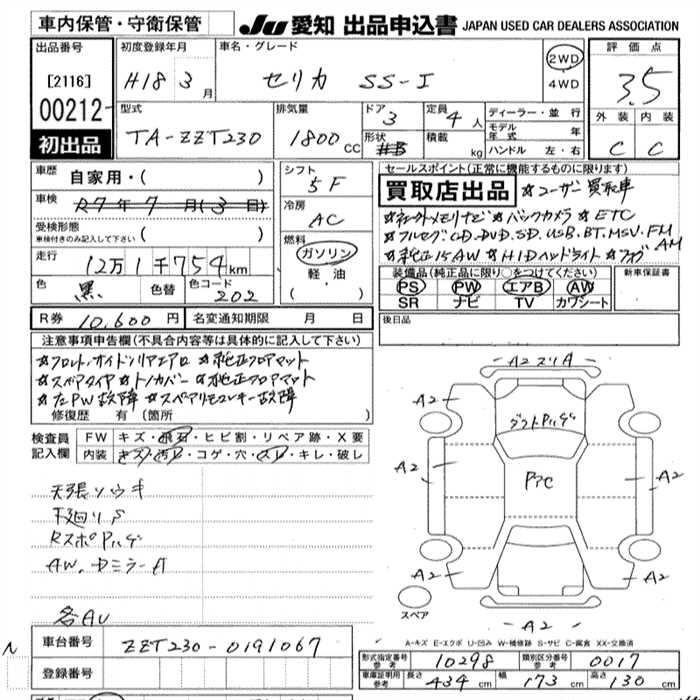 車内保管・守衛保管 JU 愛知 出品申込書 JAPAN USED CAR DEALERS ASSOCIATION
出品番号 初度登録年月 車名・グレード 評価点
[2116] H18 3月 セリカ SS-I 2WD 4WD 3.5
00212- 型式 排気量 ドア 定員 ディーラー・並行 外装 内装
初出品 TA-ZZT230 1800cc 3 4人 モデル年式 年 C C
形状 積載 kg ハンドル 左・右
車歴 自家用・( ) シフト 5F セールスポイント(正常に機能するものに限ります)
車検 R7年7月(3日) 冷房 AC 買取店出品 ☆ユーザー買取車
受検形態 ☆社外メモリナビ☆バックカメラ☆ETC
車検付きのみ記入して下さい ( ) 燃料 ☆フルセグ.CD.DVD.SD.USB.BT.MSV.FM AM
走行 12万1千754km ガソリン ☆純正15AW☆HIDヘッドライト☆フォグ
色 黒 色替 色コード 202 軽・油 ( ) 装備品(純正品に限り○をつけてください) 新車保証書
PS PW エアB AW
SR ナビ TV カワシート
R券 10,600円 名変通知期限 月 日 後日品
注意事項申告欄(不具合内容等は具体的に記入して下さい)
☆フロント.サイド.リアエアロ ☆純正フロアマット
☆スペアタイヤ☆トノカバー☆純正フロアマット
☆左PW故障☆スペアリモコンキー故障
修復歴 有 (箇所 )
検査員記入欄 FW キズ・飛石・ヒビ割・リペア跡・X要
内装 キズ・汚レ・コゲ・穴・スレ・キレ・破レ
天張ソウキ
下廻りS
RスポPハゲ
AW.ドミラーA
各AU
A2 スリA
A2 A2
フロントPハゲ
A2 PアC A2
A2 A2
スペア
A2
A-キズ E-エクボ U-凹み W-補修跡 S-サビ C-腐食 XX-交換済
N 車台番号 ZZT230-0191067
登録番号
型式指定番号 参考 10298 類別区分番号 参考 0017
車庫証明用 参考 長さ 434cm 幅 173cm 高さ 130cm